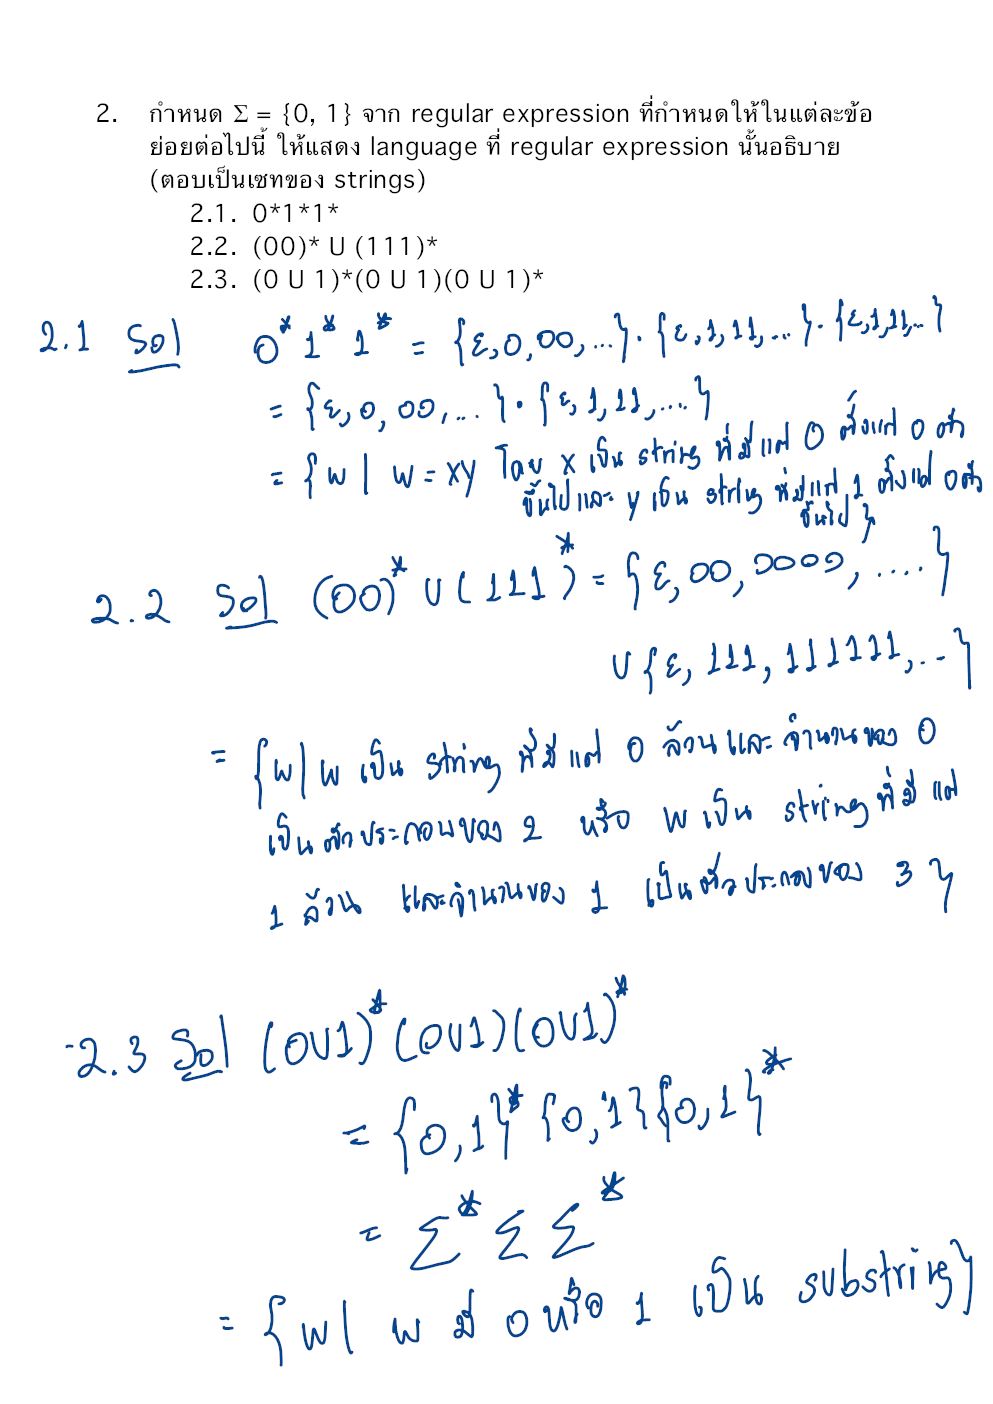 2. กำหนด Σ = {0, 1} จาก regular expression ที่กำหนดให้ในแต่ละข้อ
ย่อยต่อไปนี้ ให้แสดง language ที่ regular expression นั้นอธิบาย
(ตอบเป็นเซทของ strings)
2.1. 0*1*1*
2.2. (00)* U (111)*
2.3. (0 U 1)*(0 U 1)(0 U 1)*
2.1 Sol 0* 1* 1* = {ε,0,00,...}·{ε,1,11,...}·{ε,1,11,...}
= {ε,0,00,...}·{ε,1,11,....}
= {w | w = xy โดย x เป็น string ที่มีแต่ 0 ตั้งแต่ 0 ตัว
ขึ้นไป และ y เป็น string ที่มีแต่ 1 ตั้งแต่ 0 ตัว
ขึ้นไป}
2.2 Sol (00)* U (111)* = {ε,00,0000,....}
U {ε,111,111111,..}
= {w | w เป็น string ที่มีแต่ 0 ล้วน และ จำนวนของ 0
เป็นตัวประกอบของ 2 หรือ w เป็น string ที่มีแต่
1 ล้วน และจำนวนของ 1 เป็นตัวประกอบของ 3}
2.3 Sol (0U1)*(0U1)(0U1)*
= {0,1}*{0,1}{0,1}*
= Σ* Σ Σ*
= {w | w มี 0 หรือ 1 เป็น substring}